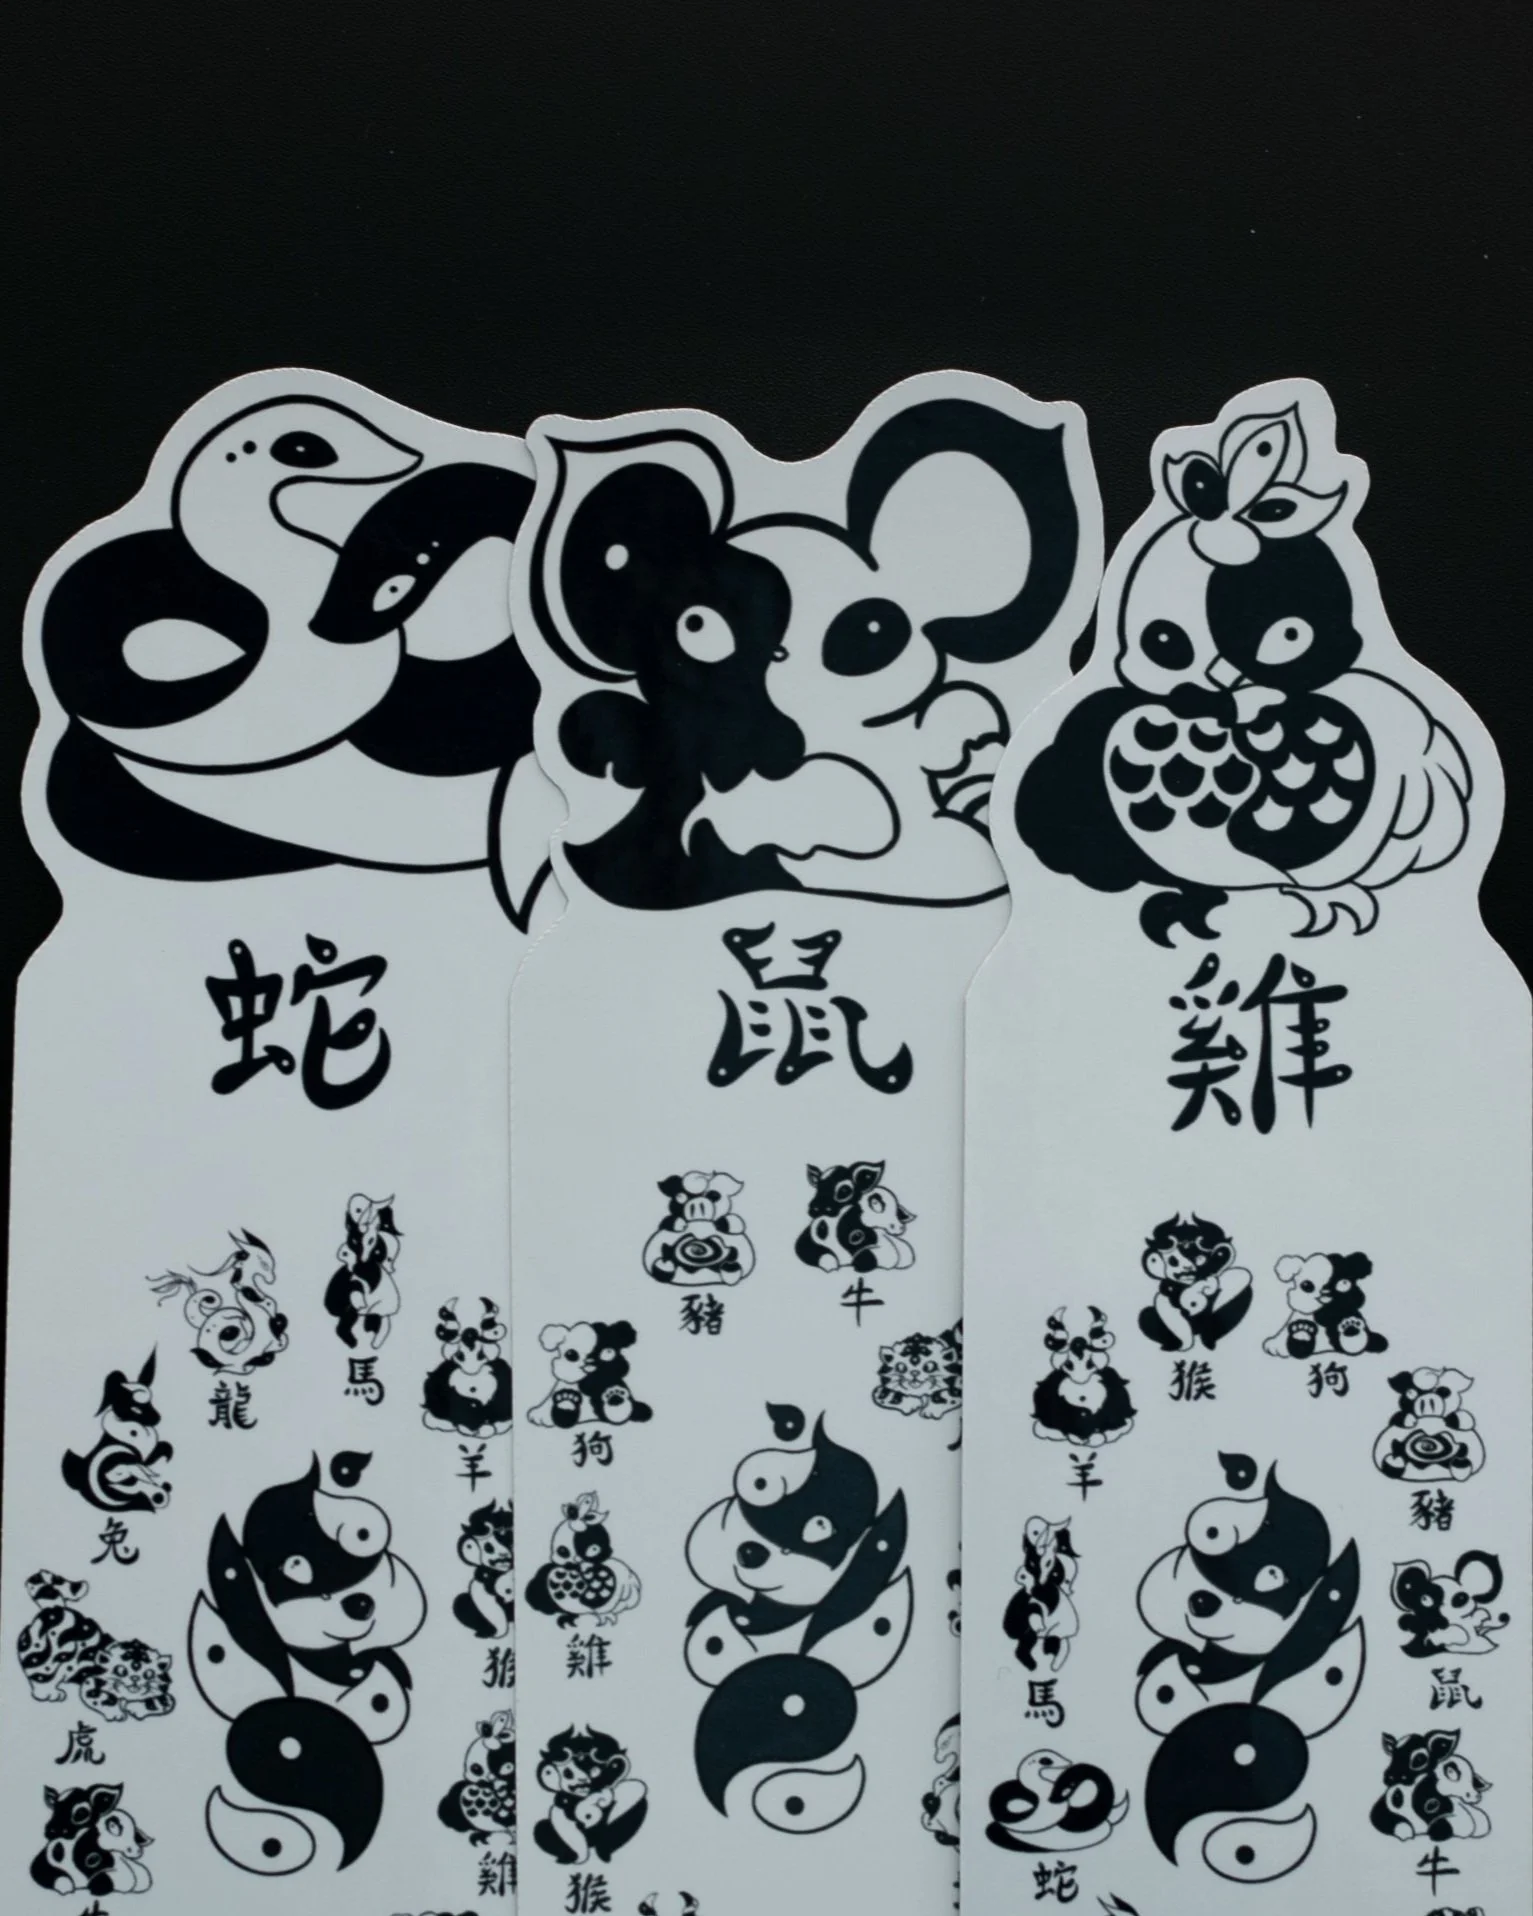 蛇
鼠
雞
馬
龍
羊
兔
猴
虎
雞
牛
豬
牛
狗
雞
猴
猴
狗
羊
豬
馬
鼠
蛇
牛